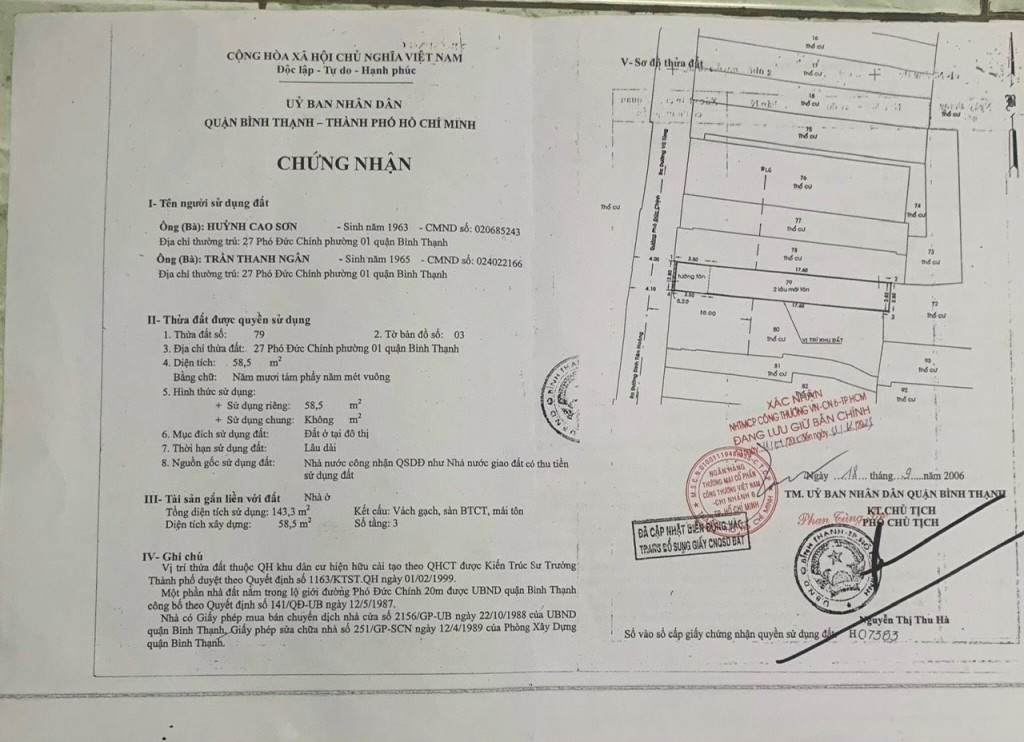 CỘNG HÒA XÃ HỘI CHỦ NGHĨA VIỆT NAM
Độc lập - Tự do - Hạnh phúc
UỶ BAN NHÂN DÂN
QUẬN BÌNH THẠNH – THÀNH PHỐ HỒ CHÍ MINH
CHỨNG NHẬN
I- Tên người sử dụng đất
Ông (Bà): HUỲNH CAO SƠN - Sinh năm 1963 - CMND số: 020685243
Địa chỉ thường trú: 27 Phó Đức Chính phường 01 quận Bình Thạnh
Ông (Bà): TRẦN THANH NGÂN - Sinh năm 1965 - CMND số: 024022166
Địa chỉ thường trú: 27 Phó Đức Chính phường 01 quận Bình Thạnh
II- Thửa đất được quyền sử dụng
1. Thửa đất số: 79 2. Tờ bản đồ số: 03
3. Địa chỉ thửa đất: 27 Phó Đức Chính phường 01 quận Bình Thạnh
4. Diện tích: 58,5 m²
Bằng chữ: Năm mươi tám phẩy năm mét vuông
5. Hình thức sử dụng:
+ Sử dụng riêng: 58,5 m²
+ Sử dụng chung: Không m²
6. Mục đích sử dụng đất: Đất ở tại đô thị
7. Thời hạn sử dụng đất: Lâu dài
8. Nguồn gốc sử dụng đất: Nhà nước công nhận QSDĐ như Nhà nước giao đất có thu tiền
sử dụng đất
III- Tài sản gắn liền với đất Nhà ở
Tổng diện tích sử dụng: 143,3 m² Kết cấu: Vách gạch, sàn BTCT, mái tôn
Diện tích xây dựng: 58,5 m² Số tầng: 3
IV- Ghi chú
Vị trí thửa đất thuộc QH khu dân cư hiện hữu cải tạo theo QHCT được Kiến Trúc Sư Trưởng
Thành phố duyệt theo Quyết định số 1163/KTST.QH ngày 01/02/1999.
Một phần nhà đất nằm trong lộ giới đường Phó Đức Chính 20m được UBND quận Bình Thạnh
công bố theo Quyết định số 141/QĐ-UB ngày 12/5/1987.
Nhà có Giấy phép mua bán chuyển dịch nhà cửa số 2156/GP-UB ngày 22/10/1988 của UBND
quận Bình Thạnh, Giấy phép sửa chữa nhà số 251/GP-SCN ngày 12/4/1989 của Phòng Xây Dựng
quận Bình Thạnh.
V- Sơ đồ thửa đất
16
Thổ cư
17
Thổ cư
18
Thổ cư
75
Thổ cư
76
Thổ cư
74
Thổ cư
77
Thổ cư
78
Thổ cư
73
Thổ cư
Thổ cư
Đường Phó Đức Chính
4.00 3.50 17.60
tường tôn
79
2 lầu mái tôn
4.10 3.50 17.60
0.20
10.00
72
Thổ cư
80
Thổ cư
VỊ TRÍ KHU ĐẤT
81
Thổ cư
82
Thổ cư
93
Thổ cư
92
Thổ cư
XÁC NHẬN
NHTMCP CÔNG THƯƠNG VN-CN 6-TP.HCM
ĐANG LƯU GIỮ BẢN CHÍNH
NGÂN HÀNG
THƯƠNG MẠI CỔ PHẦN
CÔNG THƯƠNG VIỆT NAM
-CHI NHÁNH 6
TP. HỒ CHÍ MINH
Ngày 18 tháng 9 năm 2006
TM. UỶ BAN NHÂN DÂN QUẬN BÌNH THẠNH
KT.CHỦ TỊCH
PHÓ CHỦ TỊCH
ĐÃ CẬP NHẬT BIẾN ĐỘNG VÀO
TRANG BỔ SUNG GIẤY CNQSD ĐẤT
Nguyễn Thị Thu Hà
Số vào sổ cấp giấy chứng nhận quyền sử dụng đất H07383